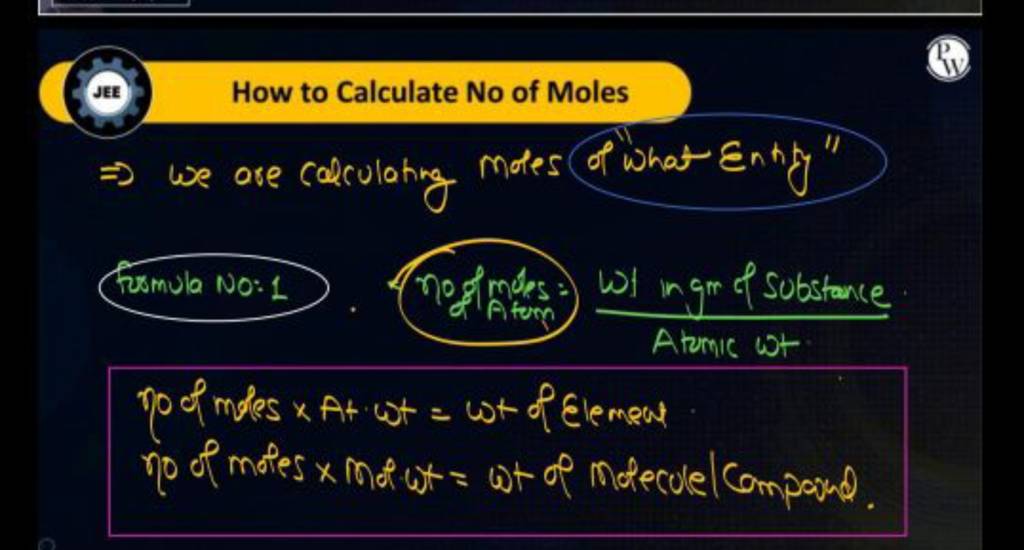 JEE
How to Calculate No of Moles
PW
⇒ we are calculating moles of "what Entity"
Formula No:1
no of moles = wt in gm of substance
of Atom
Atomic wt.
no of moles x At.wt = wt of Element.
no of moles x Mol.wt = wt of Molecule/Compound.